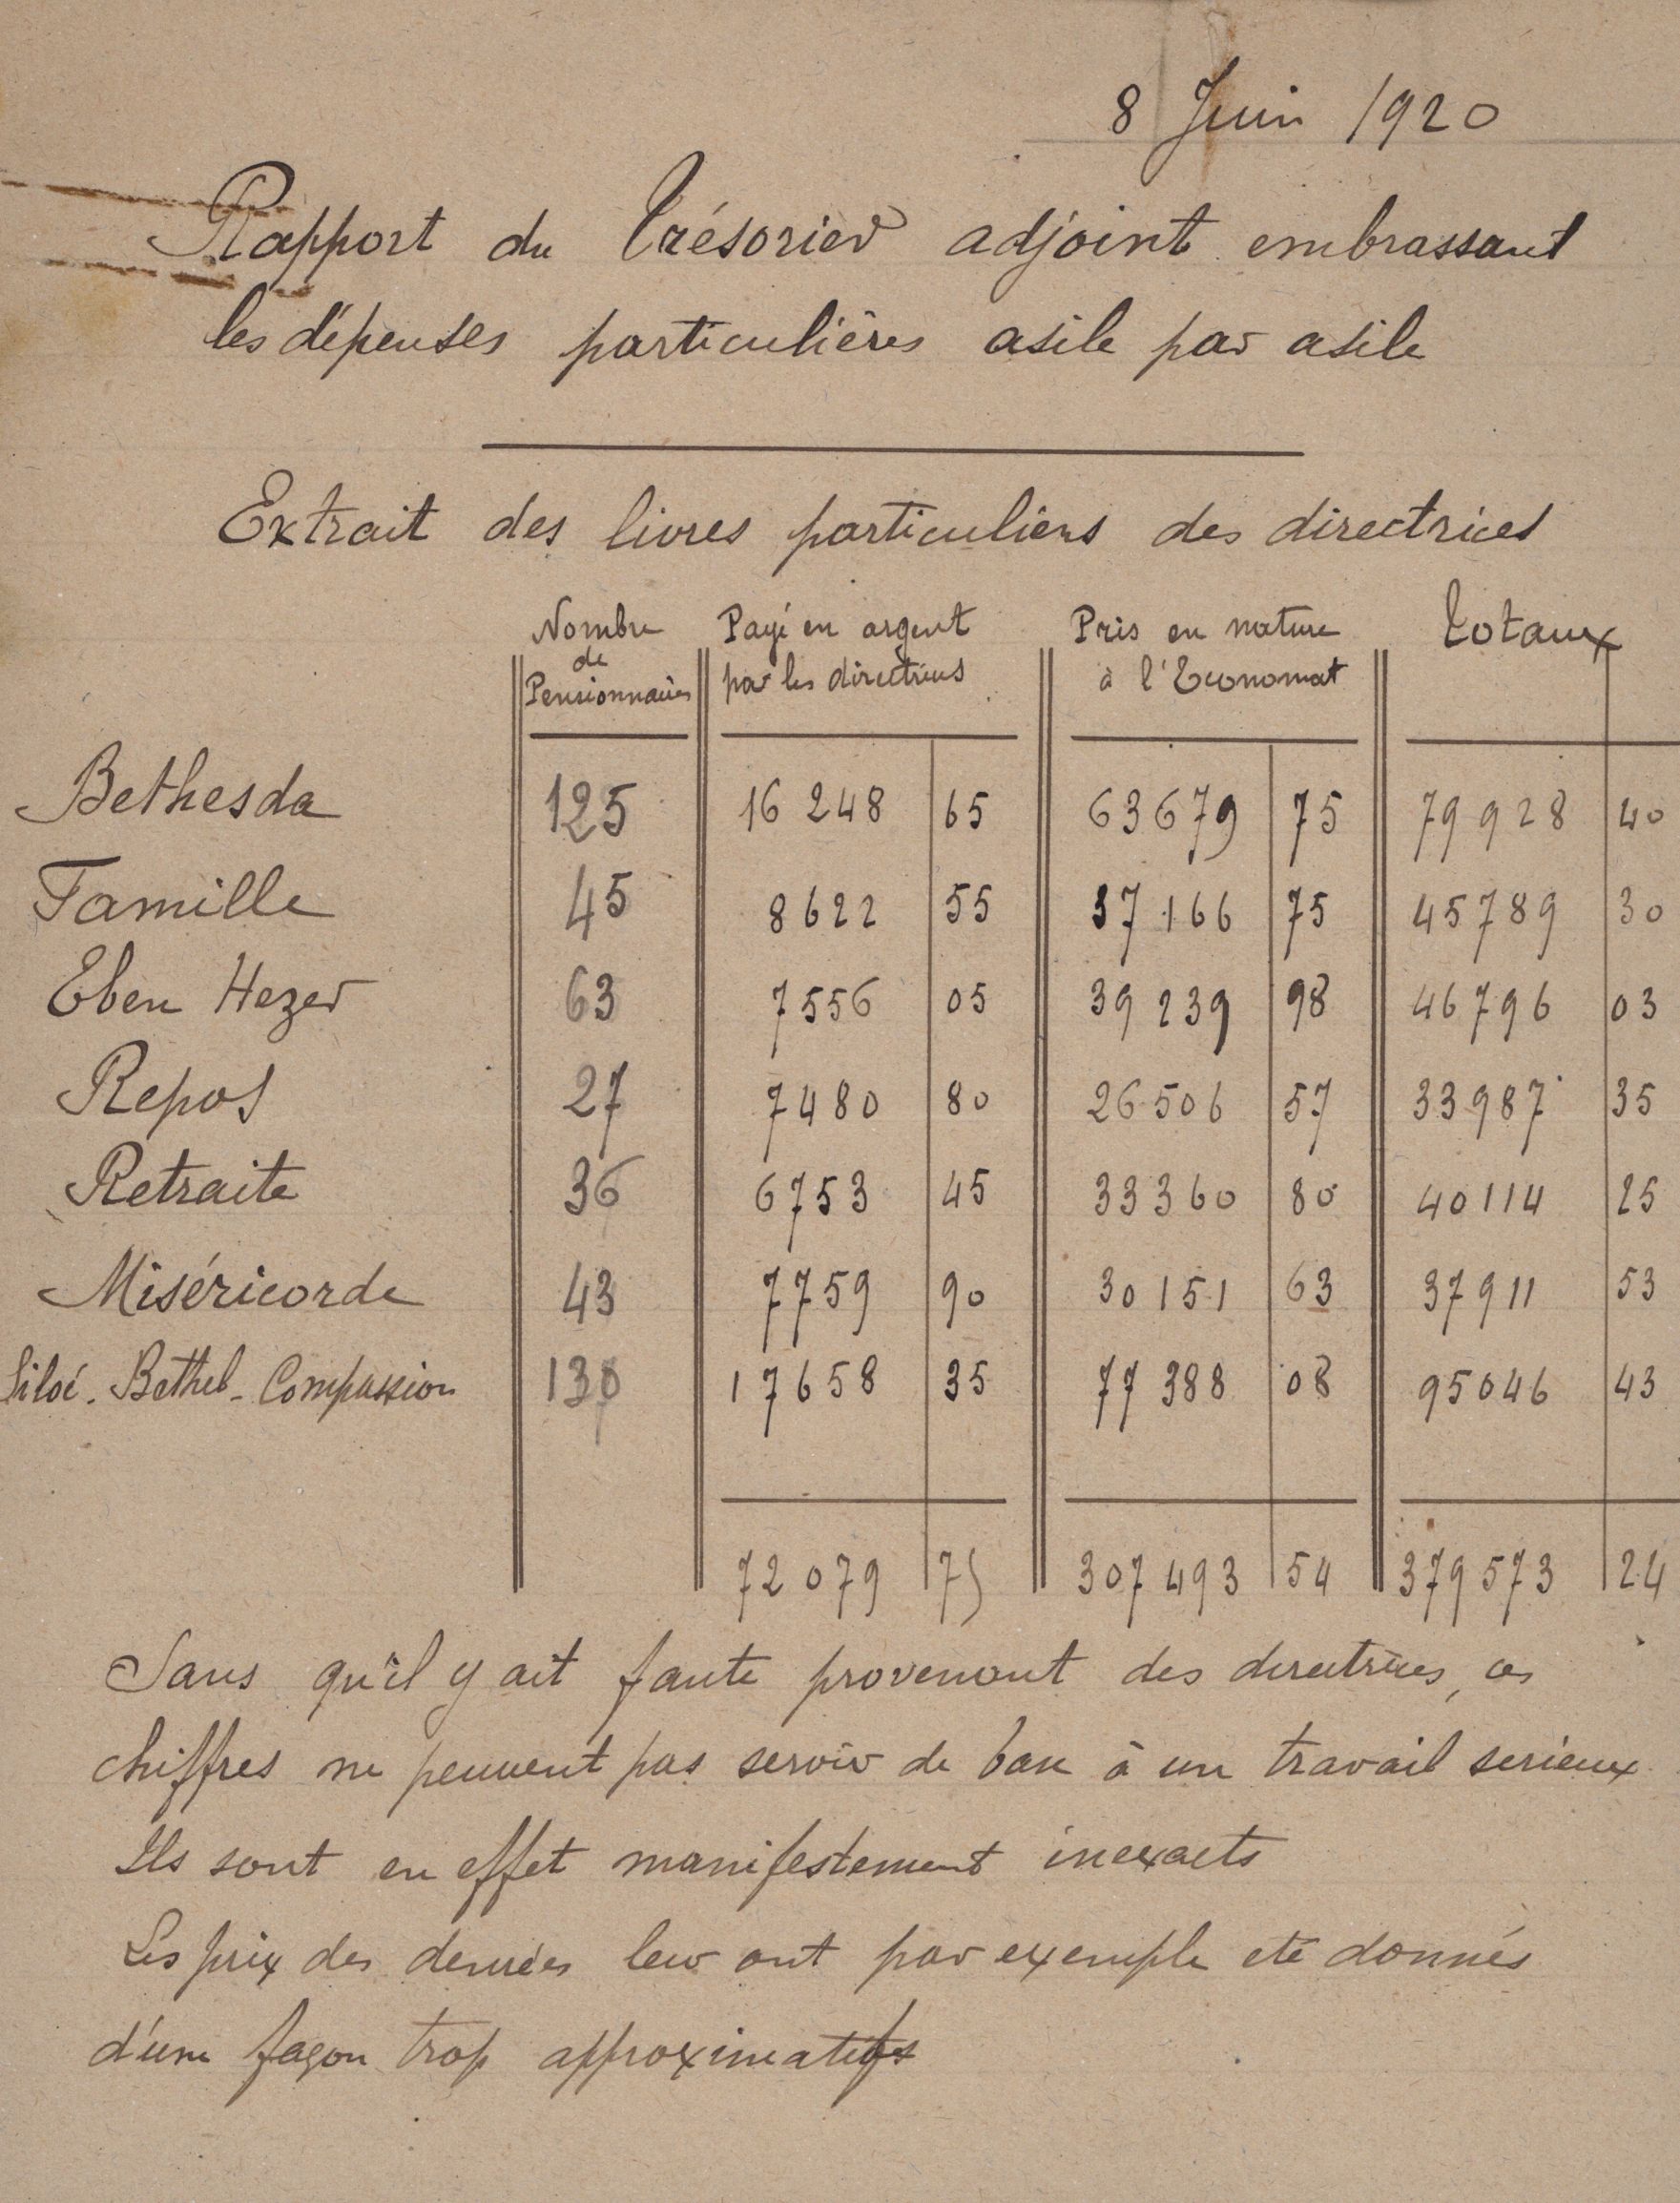 8 Juin 1920
Rapport du Trésorier adjoint embrassant
les dépenses particulières asile par asile
Extrait des livres particuliers des directrices
Nombre de Pensionnaires Payé en argent par les directrices Pris en nature à l'Economat Totaux
Bethesda 125 16 248 65 63679 75 79 928 40
Famille 45 8622 55 37 166 75 45789 30
Eben Hezer 63 7556 05 39 239 98 46796 03
Repos 27 7480 80 26 506 57 33987 35
Retraite 36 6753 45 33360 80 40114 25
Miséricorde 43 7759 90 30151 63 37911 53
Siloé. Bethel - Compassion 17658 35 77 388 08 95046 43
72 079 75 307 493 54 379 573 24
Sans qu'il y ait faute provenant des directrices, ces
chiffres ne peuvent pas servir de base à un travail serieux
Ils sont en effet manifestement inexacts
Les prix des denrées leur ont par exemple eté donnés
d'une façon trop